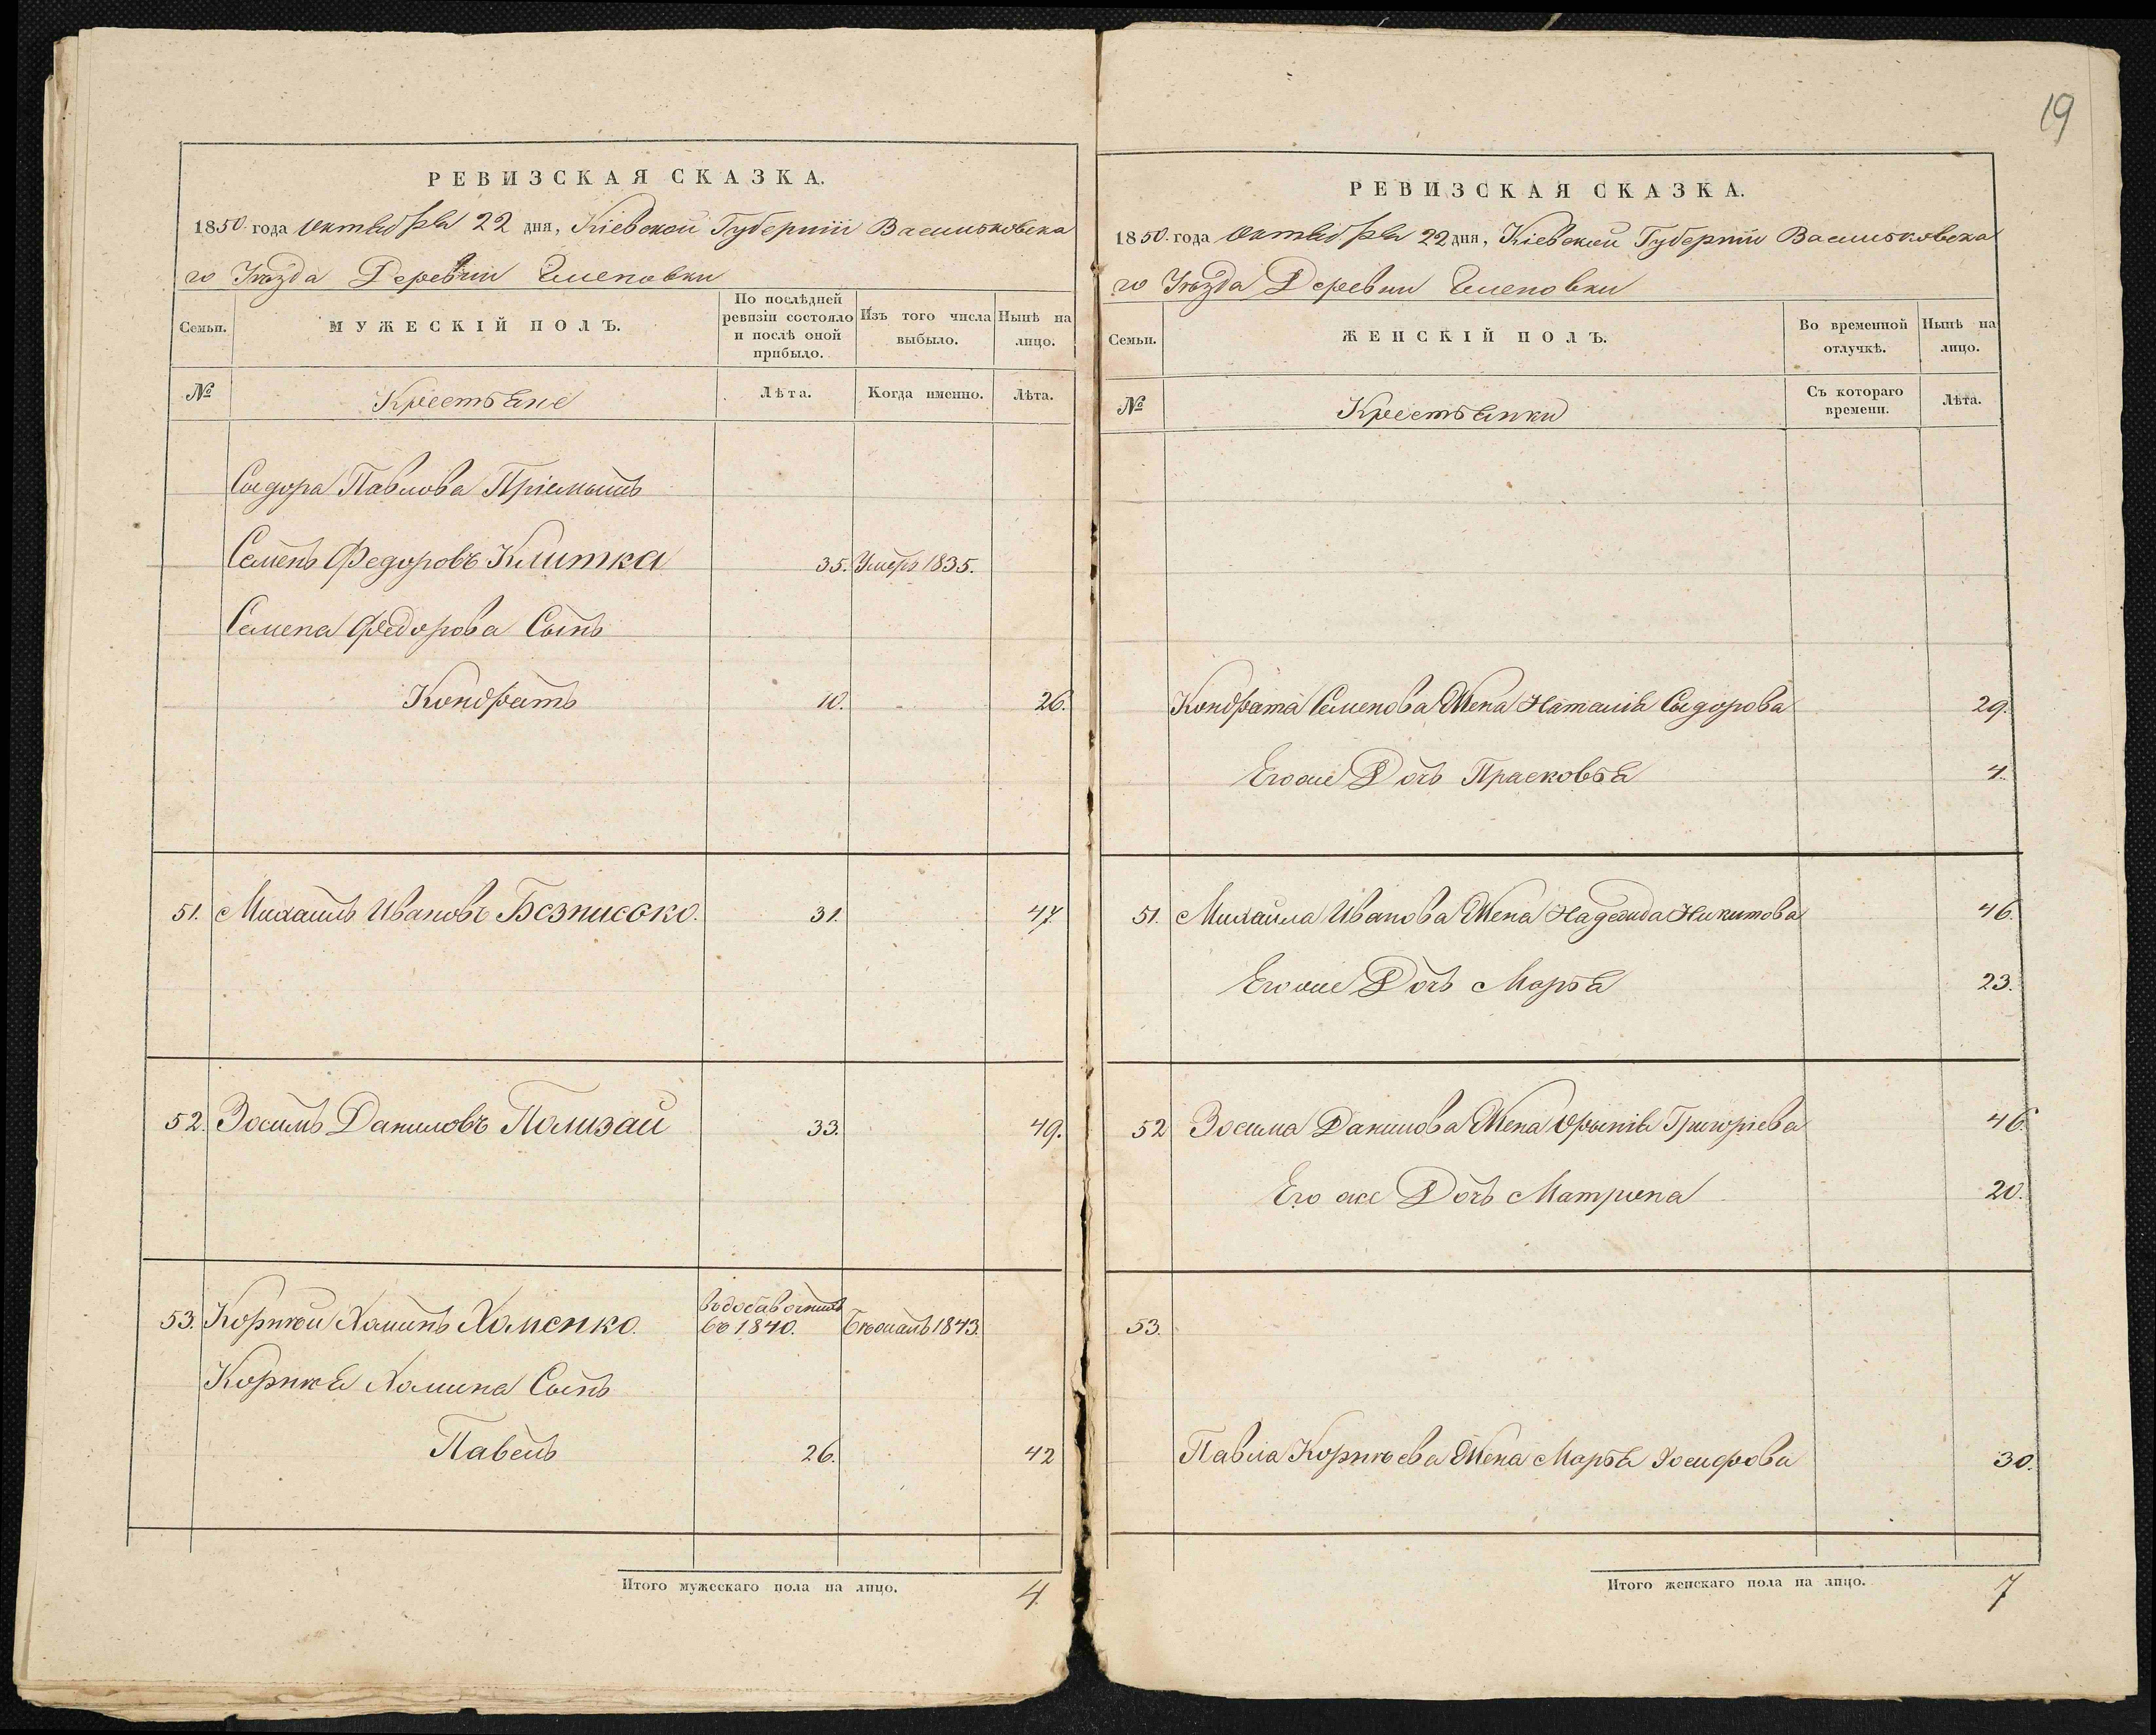 РЕВИЗСКАЯ СКАЗКА.
1850. года Октября 22 дня, Кіевской Губерніи Васильковска
го Уѣзда Деревни
Семьи.
МУЖЕСКІЙ ПОЛЪ.
По послѣдней ревизіи состояло и послѣ оной прибыло.
Изъ того числа выбыло.
Нынѣ на лицо.
№
Крестьяне
Лѣта.
Когда именно.
Лѣта.
Сидора Павлова Пріемышъ
Семенъ Федоровъ Клитка 35. Умеръ 1835.
Семена Федорова Сынъ
Кондратъ 10. 26.
51. Михаилъ Ивановъ Безписоко. 31. 47
52. Зосимъ Даниловъ Полизай 33. 49.
53. Корнѣй Хоминъ Хоменко. въ 1840. Бѣжалъ 1843.
Корнѣя Хомина Сынъ
Павелъ 26. 42
Итого мужескаго пола на лицо. 4.
19
РЕВИЗСКАЯ СКАЗКА.
1850. года Октября 22 дня, Кіевской Губерніи Васильковска
го Уѣзда Деревни
Семьи.
ЖЕНСКІЙ ПОЛЪ.
Во временной отлучкѣ.
Нынѣ на лицо.
№
Крестьянки
Съ котораго времени.
Лѣта.
Кондрата Семенова Жена Наталія Сидорова 29.
Его же Дочь Прасковья 4.
51. Михайла Иванова Жена Надежда Никитова 46.
Его же Дочь Марья 23.
52 Зосима Данилова Жена Орынія Григоріева 46.
Его же Дочь Матрона 20.
53.
Павла Корнѣева Жена Марья Іосифова 30.
Итого женскаго пола на лицо. 7